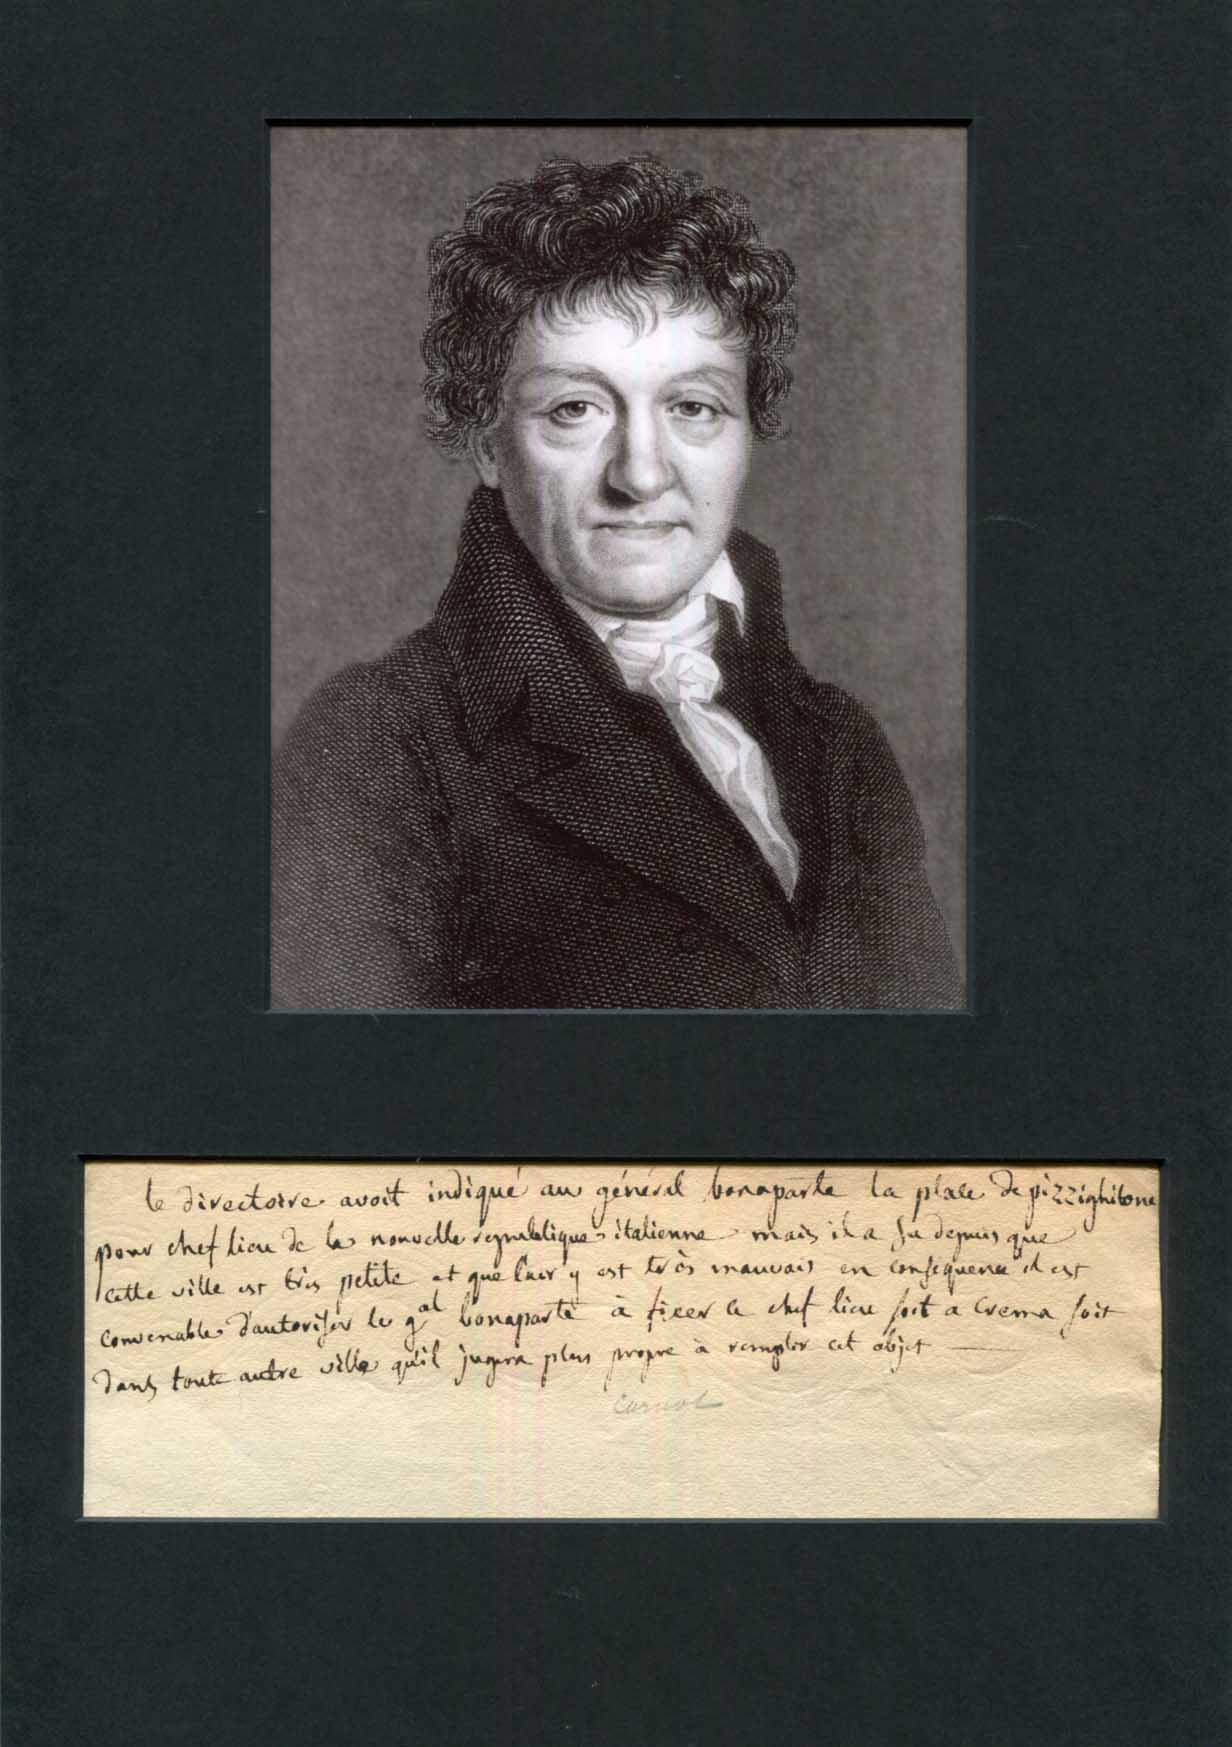 le directoire avoit indiqué au général bonaparte la place de pizzighitone
pour chef lieu de la nouvelle republique italienne mais il a su depuis que
cette ville est très petite et que l'air y est très mauvais en consequence il est
convenable d'autoriser le gal bonaparte à fixer le chef lieu soit a Crema soit
dans toute autre ville qu'il jugera plus propre à remplir cet objet
Carnot